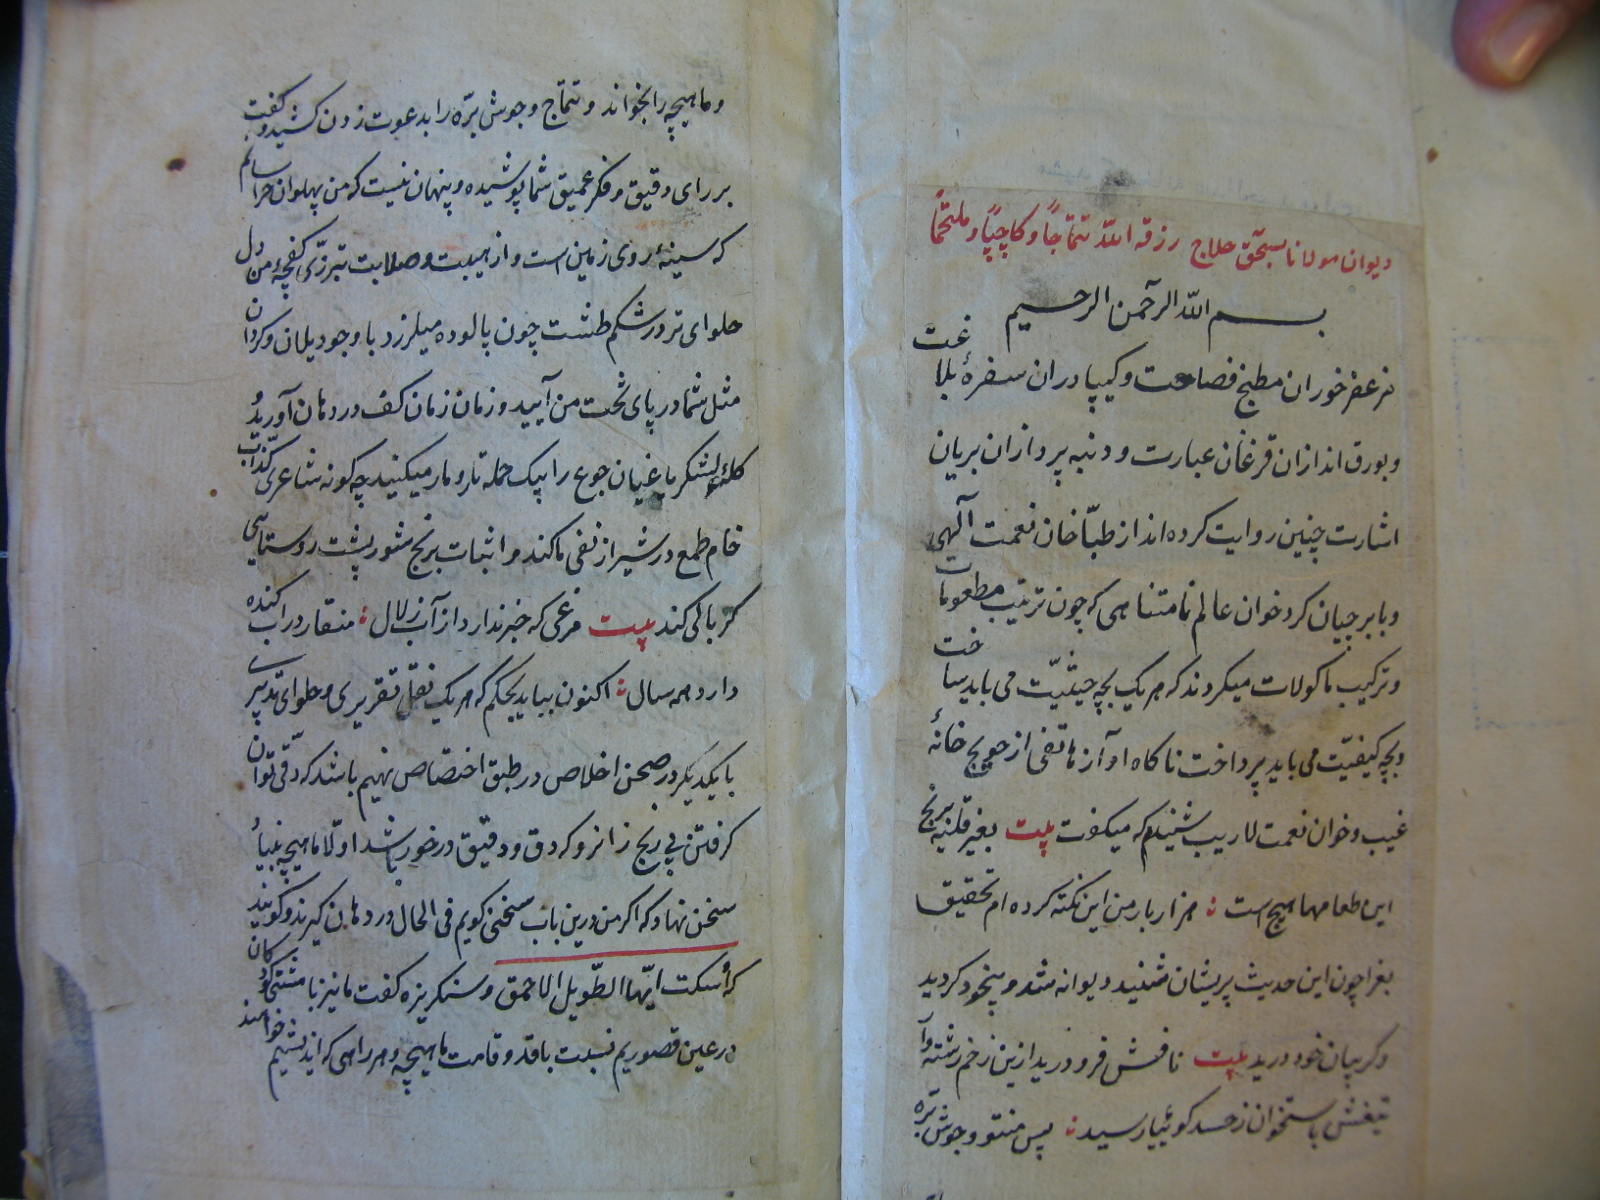 دیوان مولانا بسحق حلاج رزقه الله تتماجًا و کاچیًا و ملتحمًا
بسم الله الرحمن الرحیم
مزعفر خوران مطبخ فصاحت و کیپا دران سفرهٔ بلاغت
و بورق اندازان قزغان عبارت و دنبه پردازان بریان
اشارت چنین روایت کرده اند از طبّاخان نعمت آلهی
و بابرجیان کرد خوان عالم نامتناهی که چون ترتیب مطعومات
و ترکیب ماکولات میکردند که هر یک بچه حیثیّت می باید ساخت
و بچه کیفیّت می باید پرداخت ناکاه آوازهاتفی از حویج خانهٔ
غیب و خوان نعمت لاریب شنیدم که میکفت بیت بغیر قلیه برنج
این طعامها هیچ است ؛ هزار بار من این نکته کرده ام تحقیق
بغرا چون این حدیث پریشان شنید دیوانه شد و بیخود کردید
و کریبان خود درید بیت نافش فرو درید ازین زخم رشته وآ
تیغش باستخوان ز حسد کوئیا رسید ؛ پس منتو و جوش بره
و ماهیچه را بخواند و تتماج و جوش برّه را بدعوت زدن کشید و کفت
بر رای دقیق و فکر عمیق شما پوشیده و پنهان نیست که من پهلوان خراسانم
که سینهٔ روی زمین است و از هیبت و صلابت تبرزی کفچهٔ من دل
حلوای تر در شکم طشت چون پالوده میلرزد با وجود یلان و کردان
مثل شما در پای تخت من آیید و زمان زمان کف در دهان آورید و
کله لشکر یاغیان جوع را بیک حمله تار و مار میکنید چه کونه شاعری کذّاب
خام طمع در شیراز نفی ما کند و اثبات برنج شور پشت روستایی
کربالی کند بیت مرغی که خبر ندارد از آب زلال ؛ منقار در آب کنده
دارد همه سال ؛ اکنون بیاید بحکم که هر یک نقل تقریری و حلوای تدبیری
با یکدیکر در صحن اخلاص در طبق اختصاص نهیم باشد که دقی توان
کرفتن بی رنج زانرو که دق و دقیق در خور باشد اولا ماهیچه بنیاد
سخن نهاد که اکر من درین باب سخنی کویم فی الحال در دهان کیرند و کویند
که أسکت ایّها الطّویل الاحمق و سنکریزه کفت ما نیز با مشتی کودکان
در عین قصوریم نسبت با قد و قامت ماهیچه و هر راهی که اندیشیم خوانند